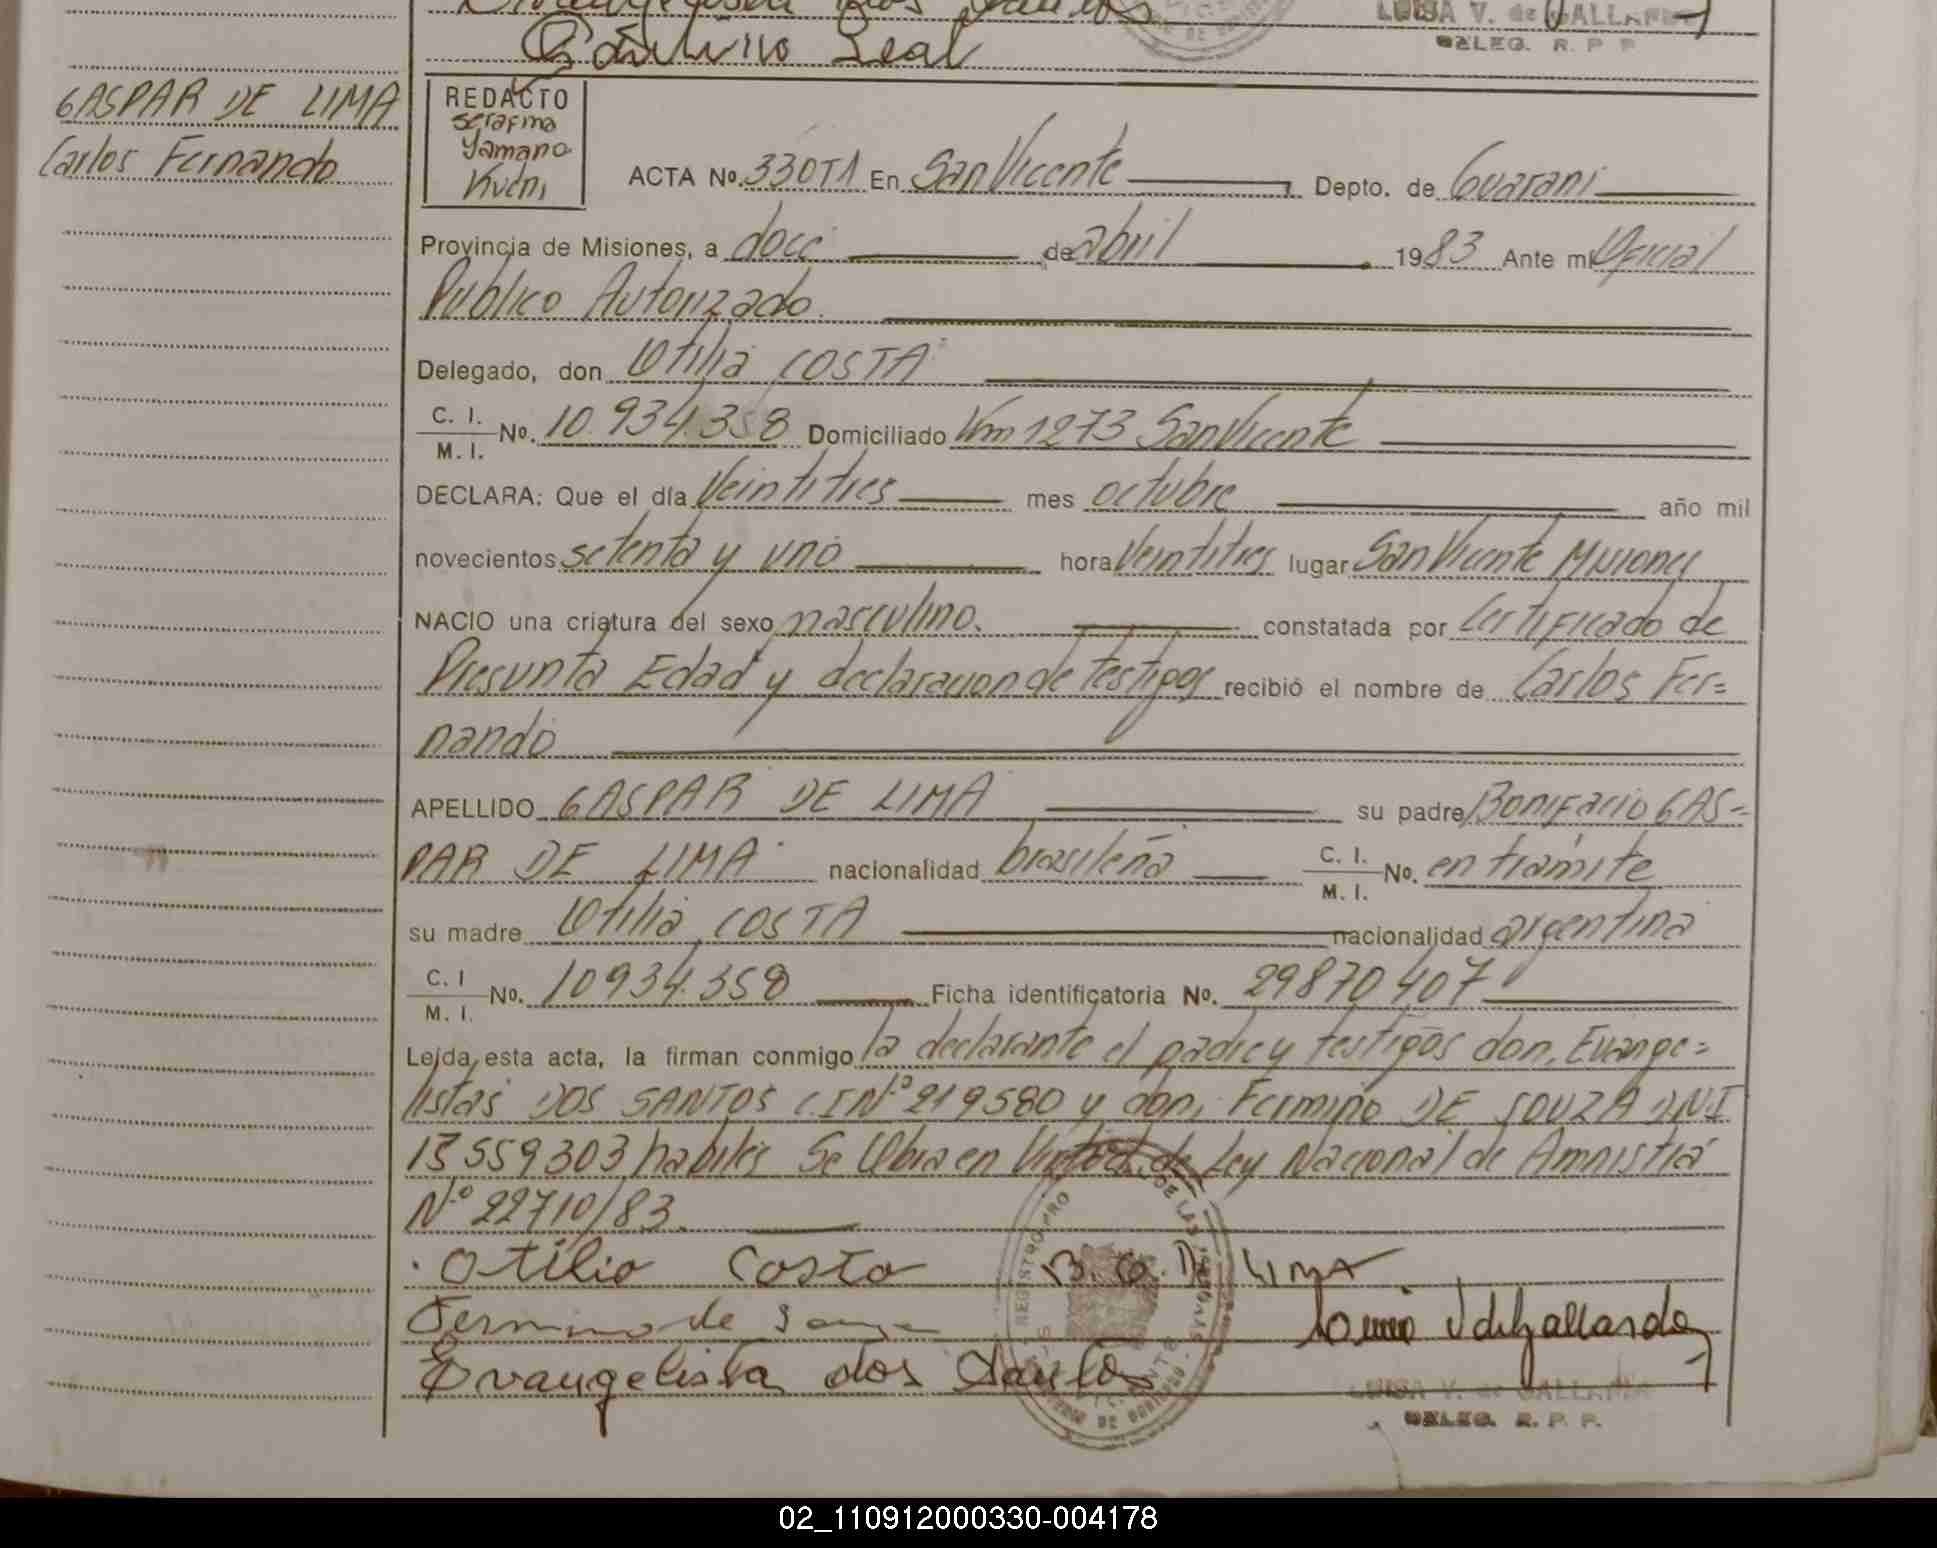 Evangelista dos Santos
LUISA V. de GALLARDO
DELEG. R. P. P.
Leal
GASPAR DE LIMA
Carlos Fernando
REDACTO
serafina
Yamano
ACTA No. 330T1 En San Vicente Depto. de Guarani
Provincia de Misiones, a doce de abril 1983 Ante mi Oficial
Publico Autorizado.
Delegado, don Otilia COSTA
C. I.
M. I. No. 10.934.358 Domiciliado Km 1273 San Vicente
DECLARA: Que el día Veintitres mes octubre año mil
novecientos setenta y uno hora Veintitres lugar San Vicente Misiones
NACIO una criatura del sexo masculino. constatada por Certificado de
Presunta Edad y declaracion de testigos recibió el nombre de Carlos Fer=
nando
APELLIDO GASPAR DE LIMA su padre Bonifacio GAS=
PAR DE LIMA nacionalidad brasileña C. I. M. I. No. en trámite
su madre Otilia COSTA nacionalidad argentina
C. I M. I. No. 10934.358 Ficha identificatoria No. 29870407
Leida esta acta, la firman conmigo la declarante el padre y testigos don, Evange=
listas DOS SANTOS C.I Nº 219580 y don, Fermino DE SOUZA D.N.I
13559303 habiles Se Obra en Virtud de Ley Nacional de Amnistia
Nº 22710/83.
Otilia Costa B. Ga. De LIMA
Fermino de
Evangelista dos Santos
LUISA V. de GALLARDO
DELEG. R. P. P.
02_110912000330-004178